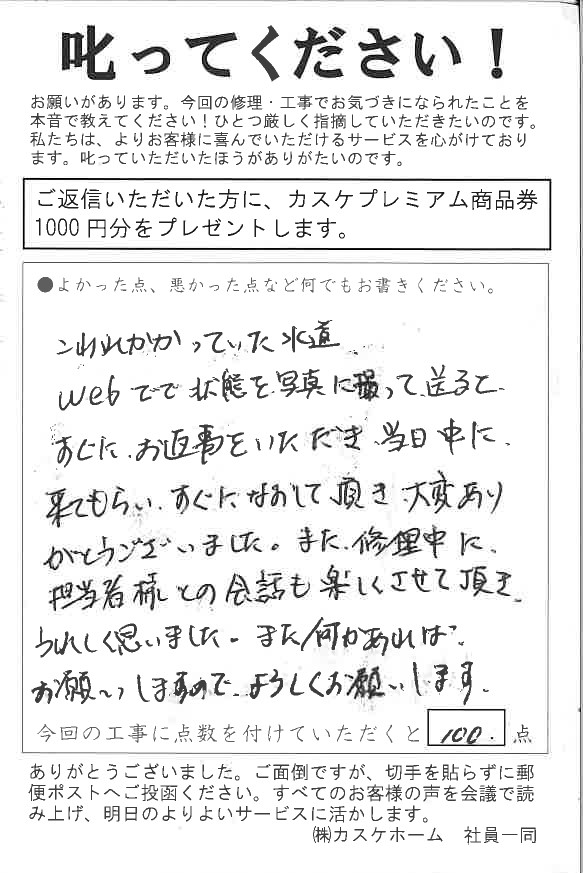 叱ってください！
お願いがあります。今回の修理・工事でお気づきになられたことを
本音で教えてください！ひとつ厳しく指摘していただきたいのです。
私たちは、よりお客様に喜んでいただけるサービスを心がけており
ます。叱っていただいたほうがありがたいのです。
ご返信いただいた方に、カスケプレミアム商品券
1000円分をプレゼントします。
●よかった点、悪かった点など何でもお書きください。
こわれかかっていた水道
webでで状態を写真に撮って、送ると、
すぐに、お返事をいただき、当日中に、
来てもらい、すぐに、なおして頂き、大変あり
がとうございました。また、修理中に、
担当者様との会話も楽しくさせて頂き、
うれしく思いました。また何かあれば、
お願いしますので、よろしくお願いします。
今回の工事に点数を付けていただくと 100. 点
ありがとうございました。ご面倒ですが、切手を貼らずに郵
便ポストへご投函ください。すべてのお客様の声を会議で読
み上げ、明日のよりよいサービスに活かします。
㈱カスケホーム 社員一同